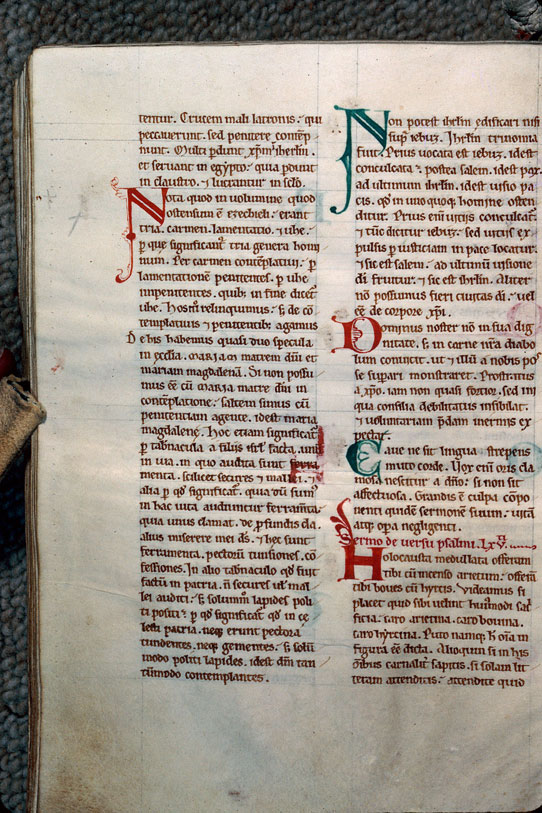 tentur. Crucem mali latronis: qui
peccauerunt. sed penitere contẽp
nunt. Multi ꝑdunt xp̃m ĩ iherl̃m.
et seruant in egypto: quia ꝑdunt
in claustro. ⁊ lucrantur in sclo.
Nota quod in uolumine quod
ostensum ẽ ezechieli: erant
tria. carmen. lamentatio. ⁊ uhe.
ꝑ que significant᷑ tria genera homi
num. Per carmen contẽplatiui: ꝑ
lamentationẽ penitentes. ꝑ uhe
impenitentes. quib; in fine dicet᷑
uhe. Hos relinquimus: s; de cõ
templatiuis ⁊ penitentib; agamus
De his habemus quasi duo specula
in eccłia. MARIAM matrem dñi et
mariam magdalenã. Si uon possu
mus eẽ cũ MARIA matre dñi in
contẽplatione: saltem simus cũ
penitentiam agente. idest maria
magdalene. Hoc etiam significat᷑
ꝑ tabnacula a filiis isrł facta. unũ
in uia. in quo audita sunt ferra
menta. scilicet secures ⁊ mallei. ⁊
alia ꝑ qd̃ significat᷑. quia dũ sum᷒
in hac uita audiuntur ferramẽta
quia unus clamat. de ꝓfundis cla.
alius miserere mei ds̃. ⁊ hec sunt
ferramenta. pectorũ tunsiones. cõ
fessiones. In alio tabnaculo qd̃ fuit
factũ in patria. ñ secures uł mal
lei auditi: s; solummo lapides poli
ti positi: ꝑ qd̃ significat᷑ qd̃ in ce
lesti patria. neq; erunt pectora
tundentes. neq; gementes: s; solũ
modo politi lapides. idest dñm tan
tũmodo contemplantes.
Non potest ihrl̃m edificari nisi
sup̱ iebuz. Ihrl̃m trinomia
fuit. Prius uocata est iebuz. idest
conculcata: postea salem. idest pax.
ad ultimum ihrl̃m. idest uisio pa
cis. qd̃ in uno quoq; homine osten
ditur. Prius enĩ uitiis conculcat᷑:
⁊ tũc dicitur iebuz: sed uitiis ex
pulsis ꝑ iusticiam in pace locatur.
⁊ sic est salem: ad ultimũ uisione
di fruitur: ⁊ sic est ihrl̃m. Aliter
nõ possumus fieri ciuitas di: uel
eẽ de corpore xp̃i.
Dominus noster nõ in sua dig
nitate. s; in carne nr̃a diabo
lum conuicit. ut ⁊ illũ a nobis pos
se supari monstraret. Prostratus
a xp̃o. iam non quasi fortior. sed ini
qua consilia debilitatus insibilat.
⁊ uoluntariam p̃dam inermis ex
pectat.
Caue ne sit lingua strepens
muto corde. Uox enĩ oris cla
mosa nescitur a dño: si non sit
affectuosa. Grandis ẽ culpa cõpo
nenti quidẽ sermonẽ suum: uitã
atq; oꝑa negligenti.
Sermo de uersu psalmi. LXV.
Holocausta medullata offeram
tibi cũ incenso arietum: offerã
tibi boues cũ hyrcis. Videamus si
placet quid sibi uelint huimodi sac̃
ficia: caro arietina. caro bouina.
caro hyrcina. Puto namq; h̃ om̃ia in
figura eẽ dicta. Alioquin si in his
om̃ibus carnalit̃ sapitis. si solam lit
teram attenditis: attendite quid